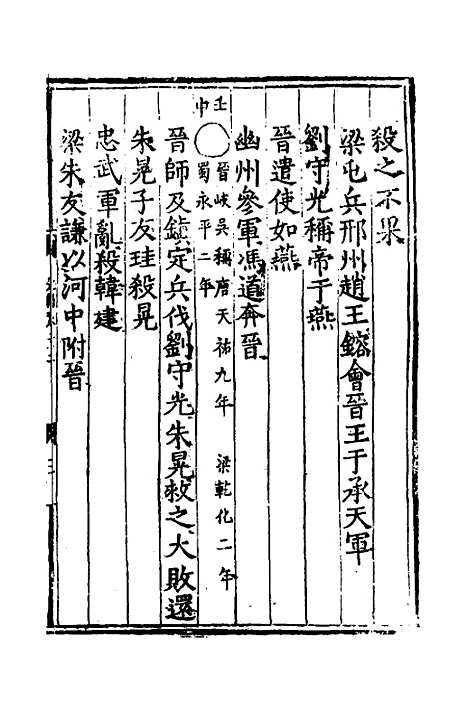 殺之不果
梁屯兵邢州趙王鎔會晉王于承天軍
劉守光稱帝于燕
晉遣使如燕
幽州參軍馮道奔晉
壬申
○晉岐吳稱唐天祐九年 梁乾化二年
蜀永平二年
晉師及鎮定兵伐劉守光朱晃救之大敗還
朱晃子友珪殺晃
忠武軍亂殺韓建
梁朱友謙以河中附晉